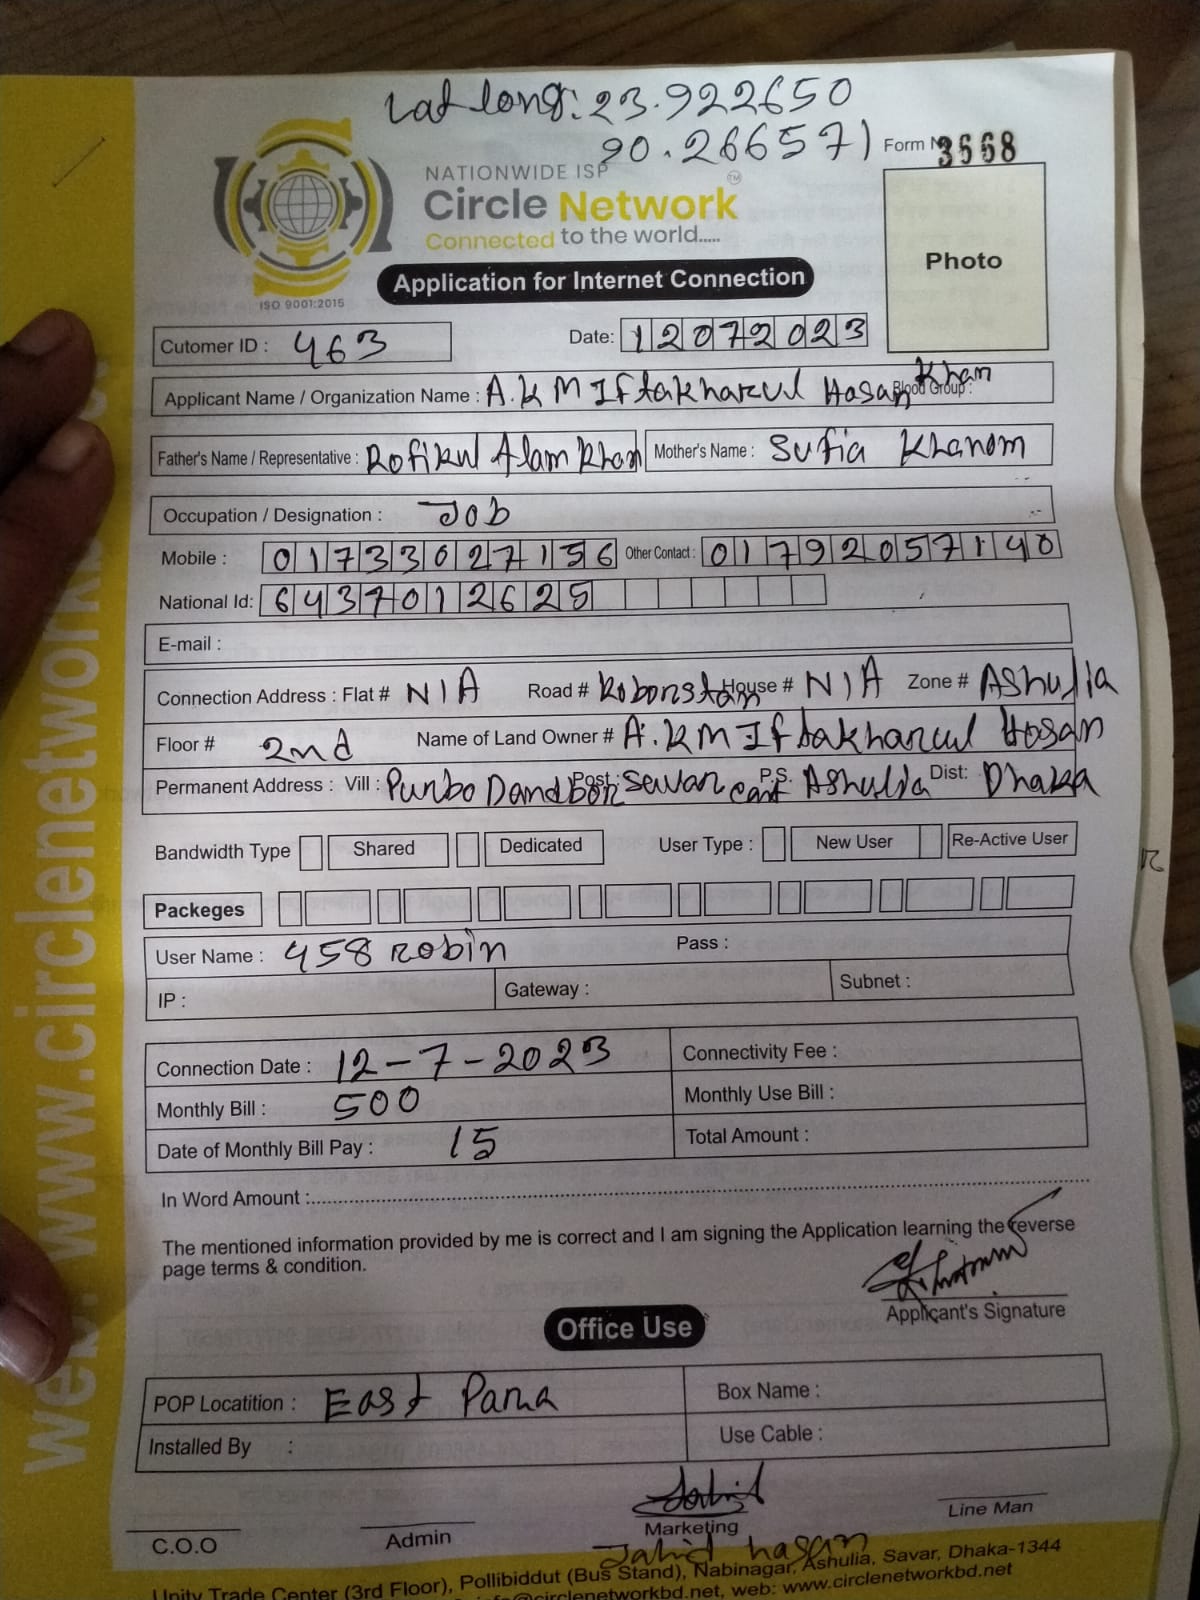 Lat long: 23.922650
90.266571
Form No 3668
NATIONWIDE ISP
Circle Network TM
Connected to the world.....
ISO 9001:2015
Application for Internet Connection
Photo
Cutomer ID : 463
Date: 12072023
Applicant Name / Organization Name : A.K M Iftakharul Hasan Khan Blood Group :
Father's Name / Representative : Rofikul Alam Khan Mother's Name : Sufia Khanom
Occupation / Designation : Job
Mobile : 01733027156 Other Contact : 01792057140
National Id: 6437012625
E-mail :
Connection Address : Flat # N/A Road # Robonstan House # N/A Zone # Ashulia
Floor # 2nd Name of Land Owner # A.K M Iftakharul Hosan
Permanent Address : Vill : Purbo Dandbor Post : Savar Cant P.S. Ashulia Dist: Dhaka
Bandwidth Type Shared Dedicated User Type : New User Re-Active User
Packeges
User Name : 458 Robin Pass :
IP : Gateway : Subnet :
Connection Date : 12-7-2023 Connectivity Fee :
Monthly Bill : 500 Monthly Use Bill :
Date of Monthly Bill Pay : 15 Total Amount :
In Word Amount :
The mentioned information provided by me is correct and I am signing the Application learning the reverse
page terms & condition.
Applicant's Signature
Office Use
POP Locatition : East Para Box Name :
Installed By : Use Cable :
C.O.O Admin Marketing Line Man
Jahid hasan
Unity Trade Center (3rd Floor), Pollibiddut (Bus Stand), Nabinagar, Ashulia, Savar, Dhaka-1344
info@circlenetworkbd.net, web: www.circlenetworkbd.net
web: www.circlenetworkbd.net